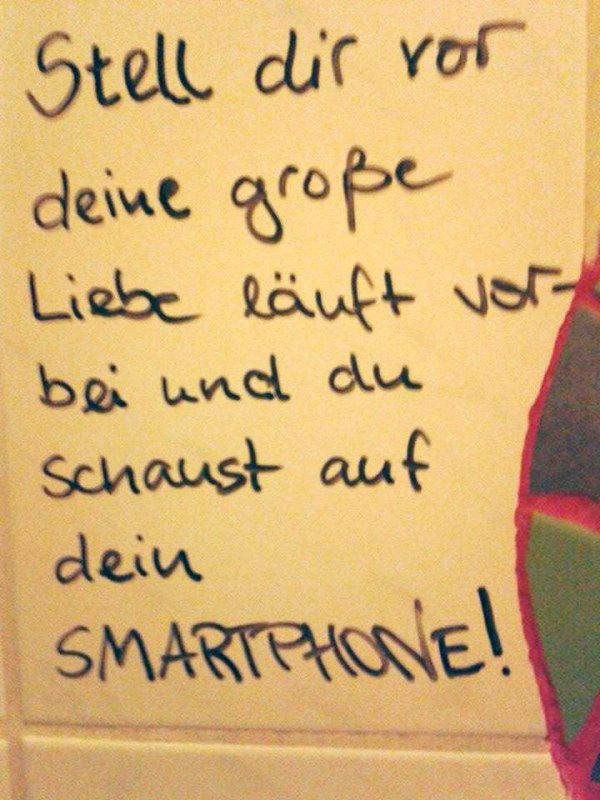 Stell dir vor
deine große
Liebe läuft vor-
bei und du
schaust auf
dein
SMARTPHONE!